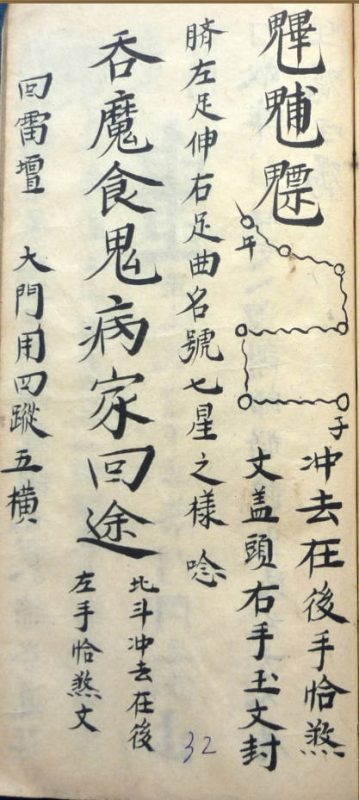 魓𩳐魒
午
子
冲去在後手恰煞
文盖頭右手玉文封
臍左足伸右足曲名號七星之様 唸
吞魔食鬼病家回途
北斗冲去在後
左手恰煞文
回雷壇 大門用四蹤五横
32